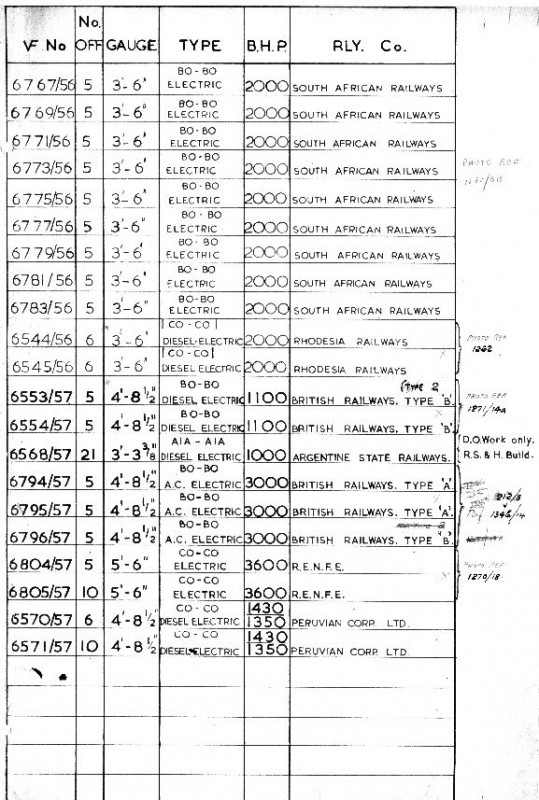 VF. No | No. OFF | GAUGE | TYPE | B.H.P. | RLY. Co.
6767/56 5 3'-6" BO-BO ELECTRIC 2000 SOUTH AFRICAN RAILWAYS
6769/56 5 3'-6" BO-BO ELECTRIC 2000 SOUTH AFRICAN RAILWAYS
6771/56 5 3'-6" BO-BO ELECTRIC 2000 SOUTH AFRICAN RAILWAYS
6773/56 5 3'-6" BO-BO ELECTRIC 2000 SOUTH AFRICAN RAILWAYS PHOTO REF
6775/56 5 3'-6" BO-BO ELECTRIC 2000 SOUTH AFRICAN RAILWAYS
6777/56 5 3'-6" BO-BO ELECTRIC 2000 SOUTH AFRICAN RAILWAYS
6779/56 5 3'-6" BO-BO ELECTRIC 2000 SOUTH AFRICAN RAILWAYS
6781/56 5 3'-6" BO-BO ELECTRIC 2000 SOUTH AFRICAN RAILWAYS
6783/56 5 3'-6" BO-BO ELECTRIC 2000 SOUTH AFRICAN RAILWAYS
6544/56 6 3'-6" 1CO-CO1 DIESEL-ELECTRIC 2000 RHODESIA RAILWAYS PHOTO REF 1262
6545/56 6 3'-6" 1CO-CO1 DIESEL-ELECTRIC 2000 RHODESIA RAILWAYS
6553/57 5 4'-8½" BO-BO DIESEL ELECTRIC 1100 BRITISH RAILWAYS, TYPE 'B'. (TYPE 2 PHOTO REF 1271/14A
6554/57 5 4'-8½" BO-BO DIESEL ELECTRIC 1100 BRITISH RAILWAYS, TYPE 'B'.
6568/57 21 3'-3⅜" A1A-A1A DIESEL ELECTRIC 1000 ARGENTINE STATE RAILWAYS. D.O. Work only. R.S. & H. Build.
6794/57 5 4'-8½" BO-BO A.C. ELECTRIC 3000 BRITISH RAILWAYS. TYPE 'A'.
6795/57 5 4'-8½" BO-BO A.C. ELECTRIC 3000 BRITISH RAILWAYS. TYPE 'A'.
6796/57 5 4'-8½" BO-BO A.C. ELECTRIC 3000 BRITISH RAILWAYS. TYPE 'B'.
6804/57 5 5'-6" CO-CO ELECTRIC 3600 R.E.N.F.E. PHOTO REF 1270/18
6805/57 10 5'-6" CO-CO ELECTRIC 3600 R.E.N.F.E.
6570/57 6 4'-8½" CO-CO DIESEL ELECTRIC 1430 1350 PERUVIAN CORP. LTD.
6571/57 10 4'-8½" CO-CO DIESEL ELECTRIC 1430 1350 PERUVIAN CORP. LTD.